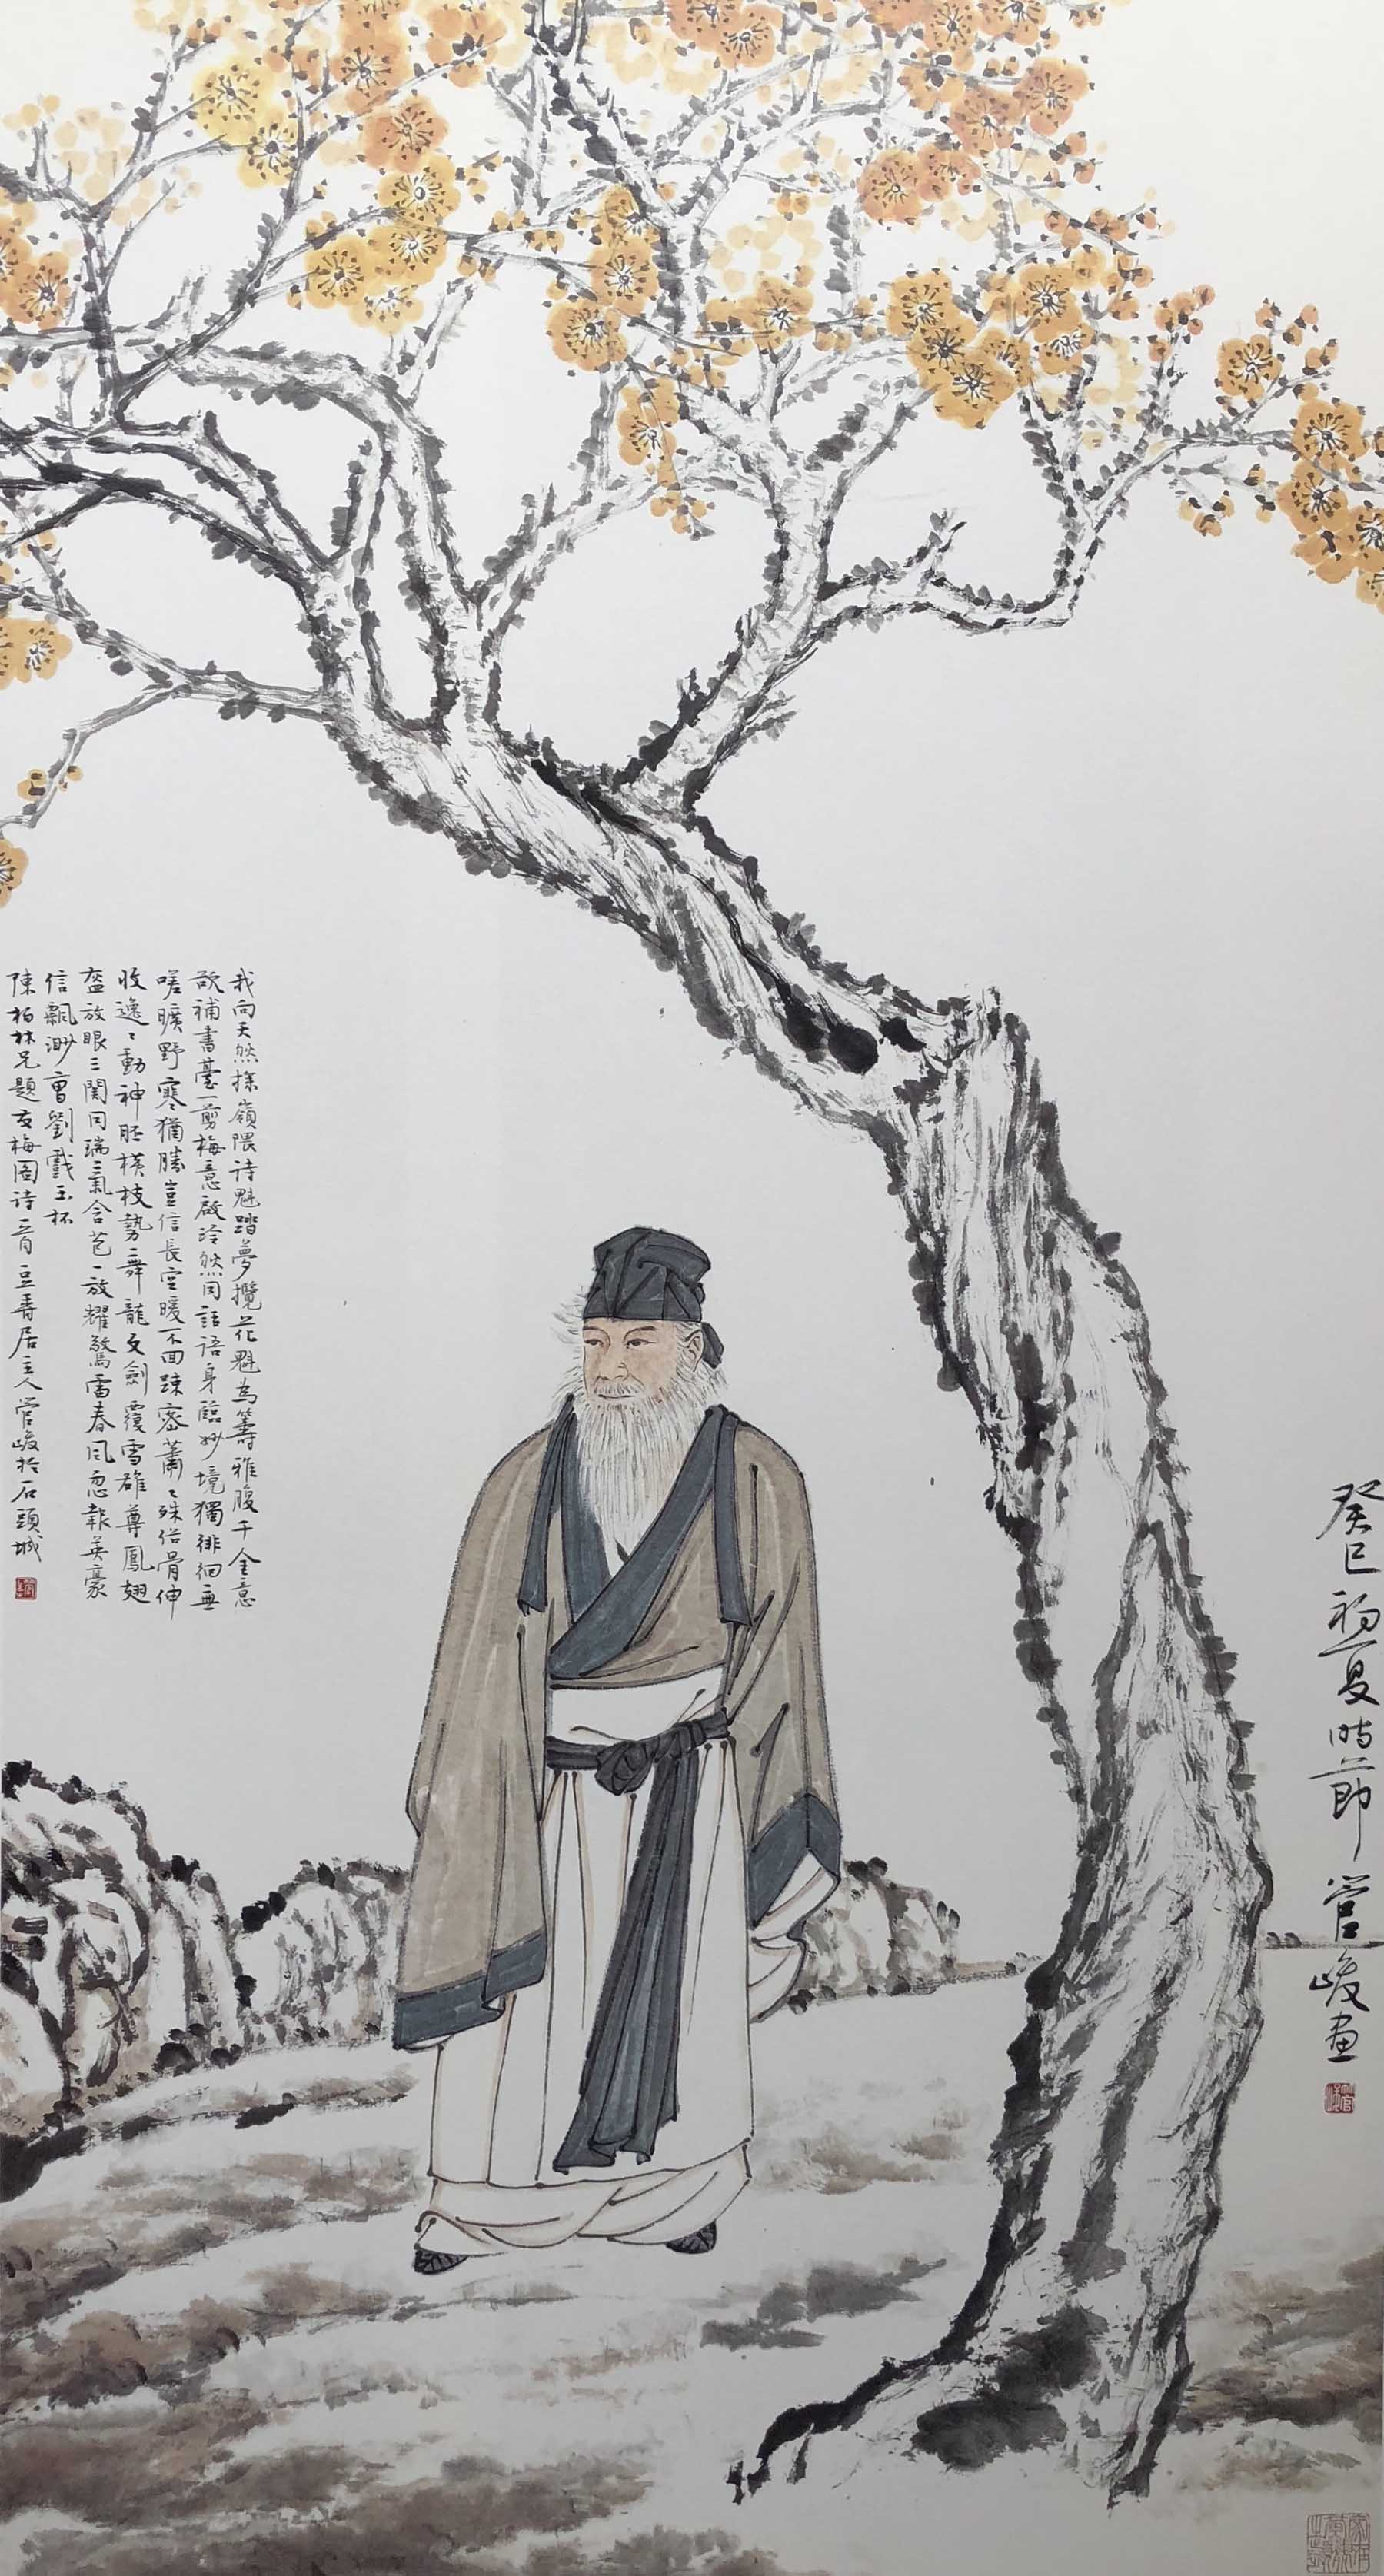 癸巳初夏時節 管峻畫
我向天然探嶺隈詩魁踏夢攬花魁為籌雅腹千金意
欲補書臺一剪梅意啟泠然同話語身臨妙境獨徘徊無
嗟曠野寒猶勝豈信長空暖不回疎密蕭々殊俗骨伸
收逸々動神胚橫枝勢舞龍文劍覆雪雄尊鳳翅
盔放眼三関同瑞氣含苞一放耀驚雷春風忽報英豪
信飄渺曹劉戲玉杯
陳柏林兄題友梅圖詩三首 豆青居主人管峻於石頭城